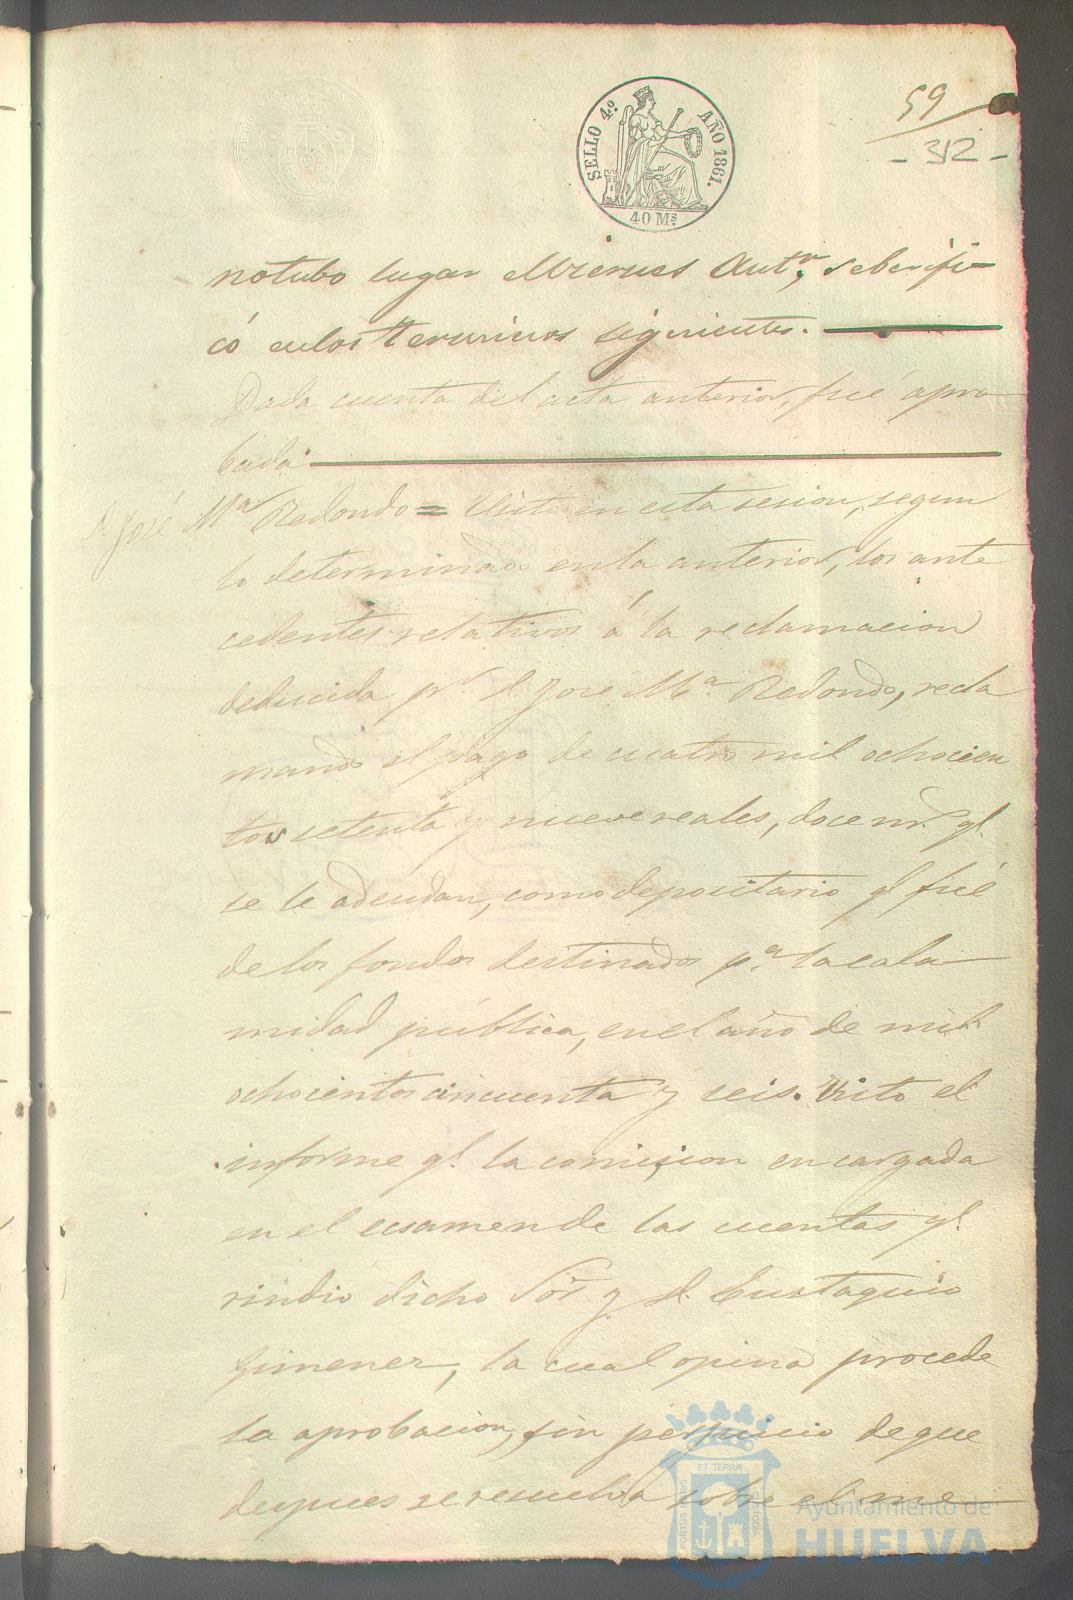 59
- 312 -
SELLO 4.º AÑO 1861.
40 Ms
notubo lugar Miernes Antr, seberifi
có enlos terminos siguientes.
Dada cuenta del acta anterior, fué apro
bada
D. José Mª Redondo = Visto en esta sesion, segun
lo determinado enla anterior, los ante
cedentes relativos á la reclamacion
deducida pr. D. José Mª Redondo, recla
mando el pago de cuatro mil ochocien
tos setenta y nueve reales, doce mrs. q.
se le adeudan, como depositario q. fué
delos fondos destinados pª. lacala
midad pública, en el año de mil
ochocientos cincuenta y seis. Visto el
informe q. la comision encargada
en el ecsamen de las cuentas q.
rindio dicho Sor. y D. Eustaquio
Jimenez, la cual opina procede
la aprobacion, sin perjuicio de que
despues se resuelva sobre el me
PORTUS MARIS ET TERRÆ CUSTODIA
Ayuntamiento de
HUELVA